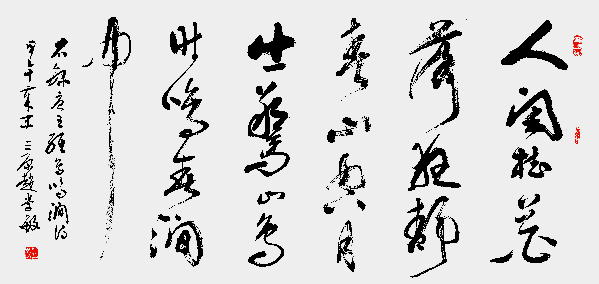 人闲桂花
落夜静
春山空月
出惊山鸟
时鸣春涧
中
王维鸟鸣涧诗
甲午
三原赵